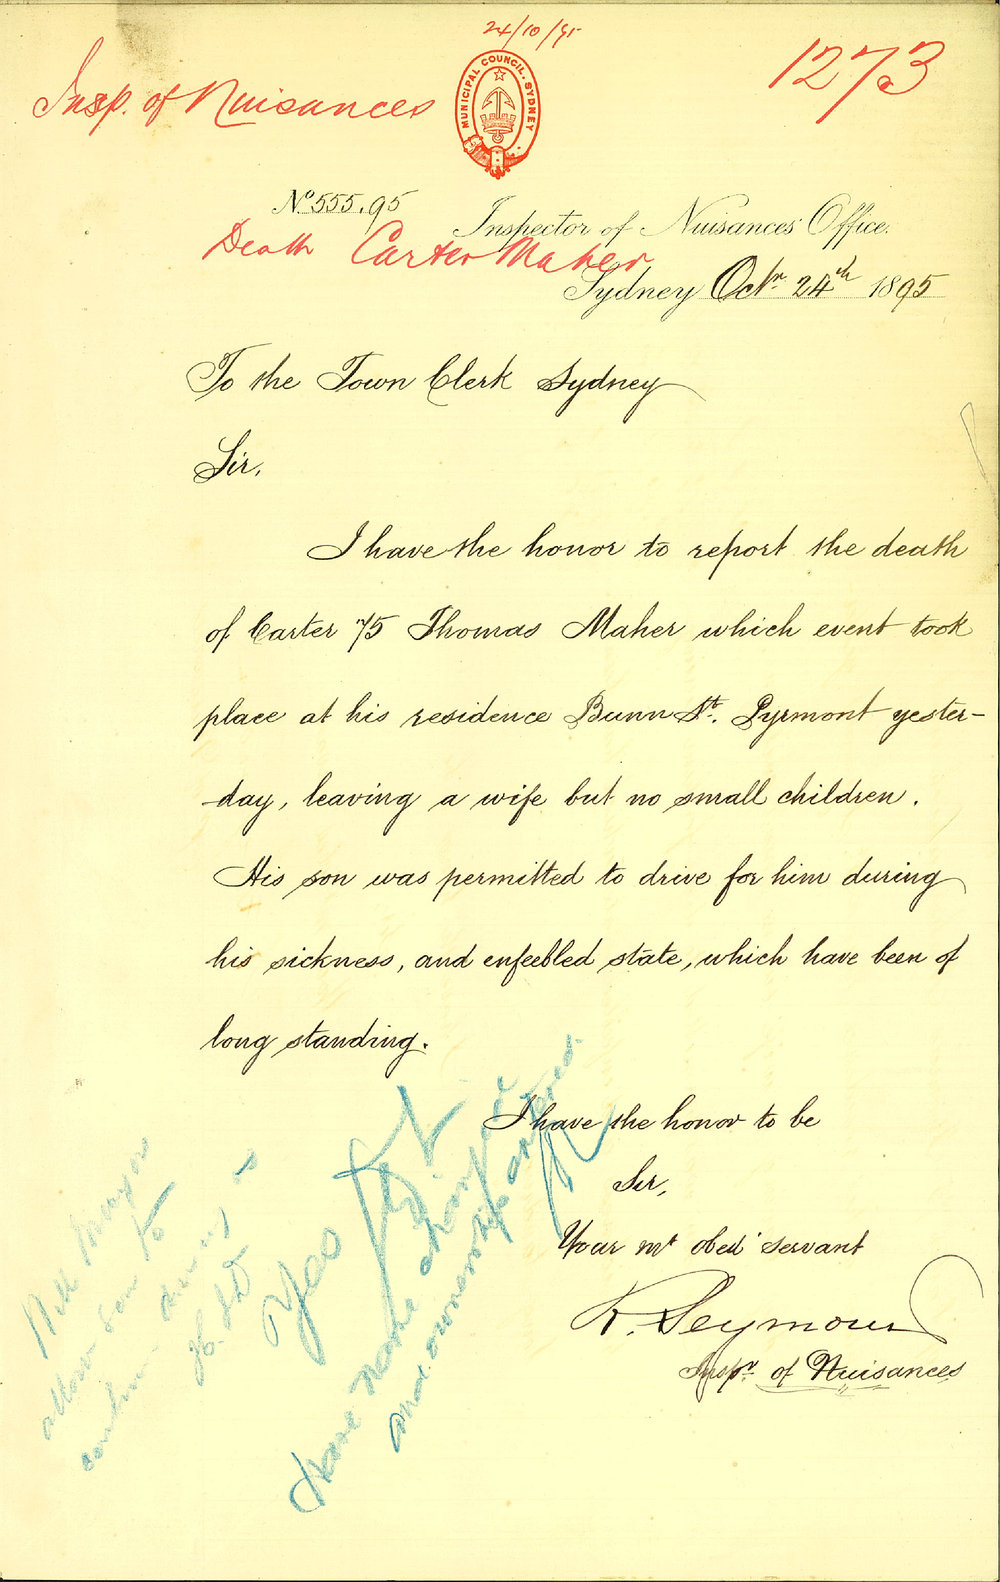 24/10/95
Insp. of Nuisances
MUNICIPAL COUNCIL. SYDNEY
1273
No 555.95
Inspector of Nuisances Office.
Death Carter Maher
Sydney Octr 24th 1895
To the Town Clerk Sydney
Sir,
I have the honor to report the death
of Carter 75 Thomas Maher which event took
place at his residence Bunn St. Pyrmont yester-
-day, leaving a wife but no small children.
His son was permitted to drive for him during
his sickness, and enfeebled state, which have been of
long standing.
I have the honor to be
Sir,
Your mt obed servant
R. Seymour
Inspr of Nuisances
Will Mayor
allow son to
continue driving
Yes
have name changed
and ownership altered